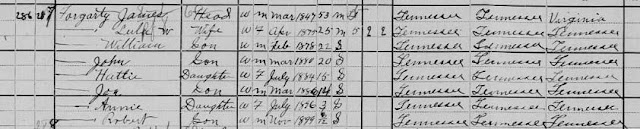 286 287 Forgarty James Head W M Mar 1847 53 M 5 Tennessee Tennessee Virginia
— Lula W Wife W F Apr 1875 25 M 5 2 2 Tennessee Tennessee Tennessee
— William Son W M Feb 1878 22 S Tennessee Tennessee Tennessee
— John Son W M Mar 1880 20 S Tennessee Tennessee Tennessee
— Hattie Daughter W F July 1884 15 S Tennessee Tennessee Tennessee
— Joe Son W M Mar 14 S Tennessee Tennessee Tennessee
— Annie Daughter W F July 1896 3 S Tennessee Tennessee Tennessee
— Robert Son W M Nov 1899 S Tennessee Tennessee Tennessee